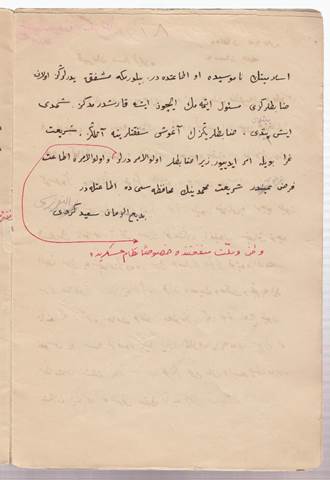 اسلامیتك ناموسیده او اطاعتده در. بیلورمكه مشفق پدرلركز اولان
ضابطلركزی مسئول ایتمه مك ایچون ایشه قارشدرمدكز. شمدی
ایش بیتدی. ضابطلریكزك آغوش شفقتلرینه آتلكز. شریعت
غرا بویله امر ایدییور زیرا ضابطلر اولوالامردرلر
واولوالامره اطاعت
فرضدر. شریعت محمدینك محافظه سی ده اطاعتله در
بدیع الزمان سعید كردی
وطن وملت منفعتنده خصوصا نظام عسكریده